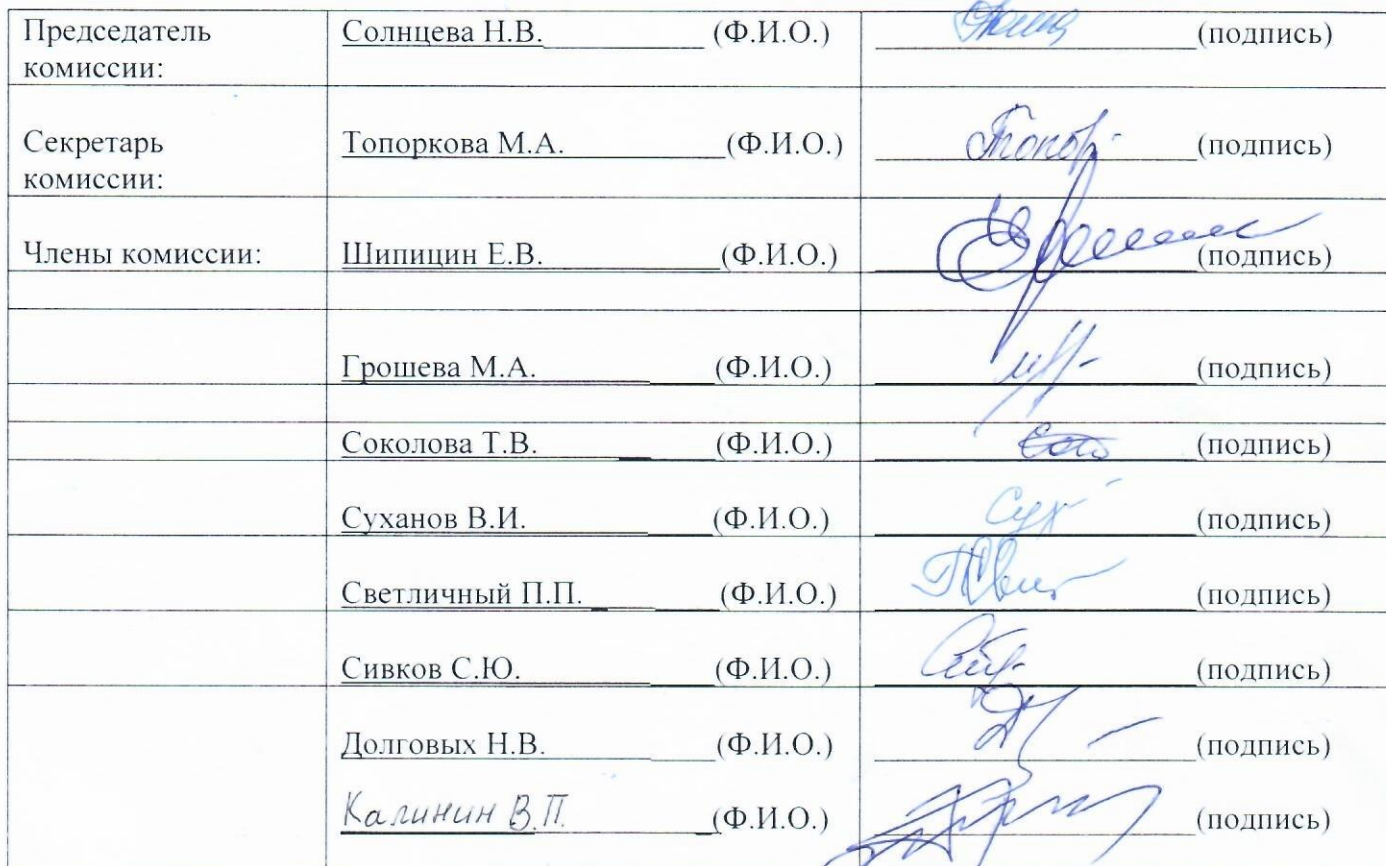 Председатель Солнцева Н.В. (Ф.И.О.) (подпись)
комиссии:
Секретарь Топоркова М.А. (Ф.И.О.) Топор (подпись)
комиссии:
Члены комиссии: Шипицин Е.В. (Ф.И.О.) (подпись)
Грошева М.А. (Ф.И.О.) (подпись)
Соколова Т.В. (Ф.И.О.) (подпись)
Суханов В.И. (Ф.И.О.) Сух (подпись)
Светличный П.П. (Ф.И.О.) (подпись)
Сивков С.Ю. (Ф.И.О.) (подпись)
Долговых Н.В. (Ф.И.О.) (подпись)
Калинин В.П. (Ф.И.О.) (подпись)